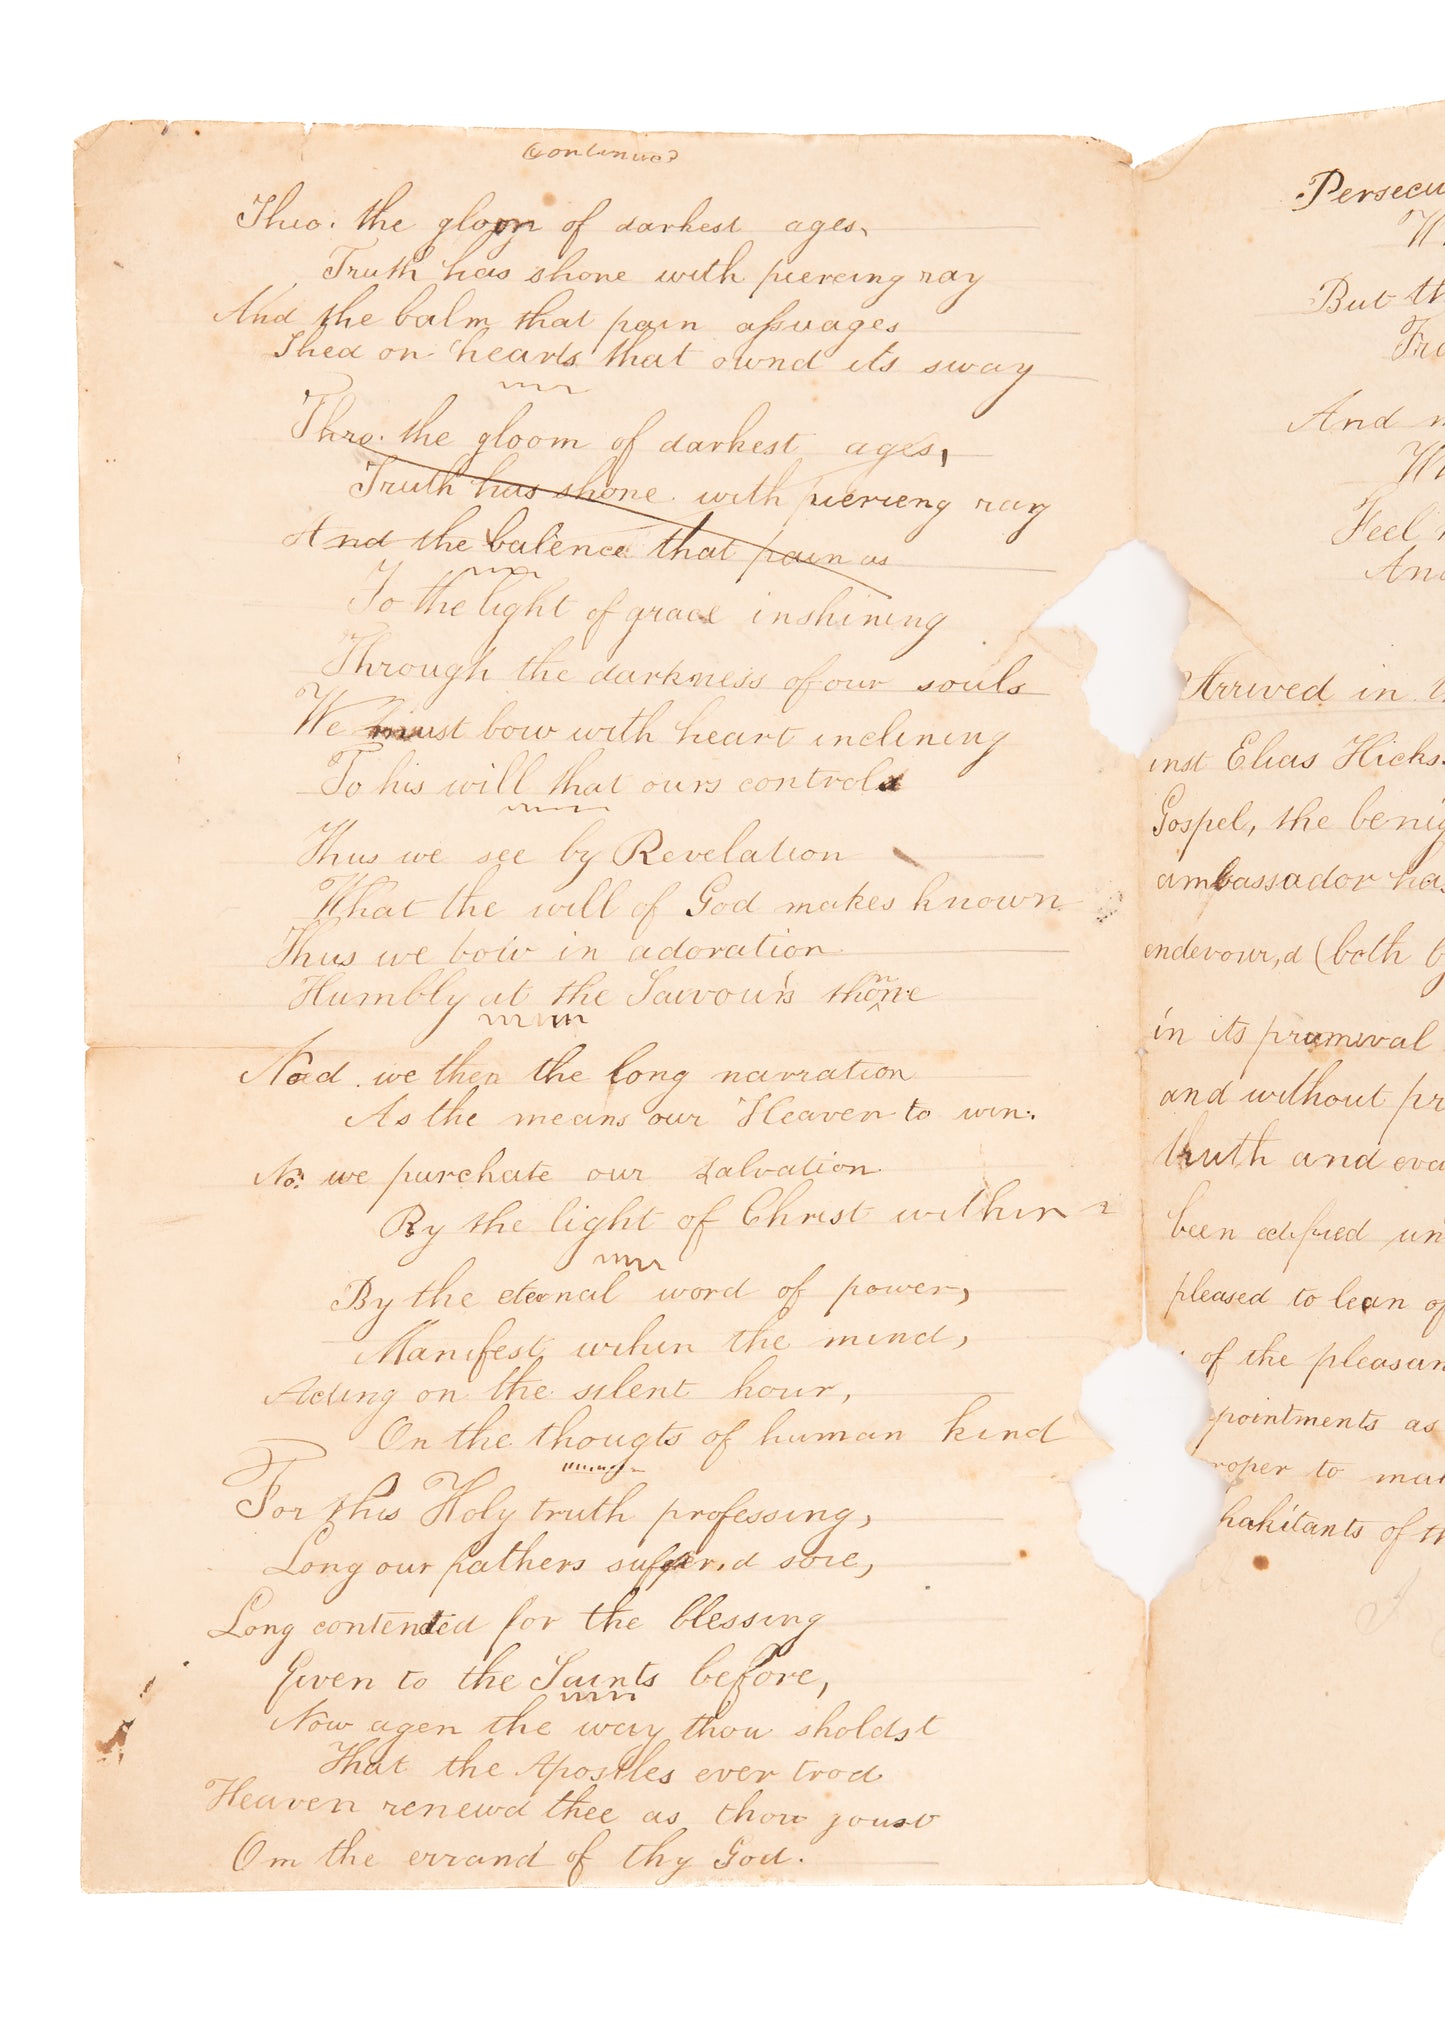 Continued
Thro. the gloom of darkest ages,
Truth has shone with piercing ray
And the balm that pain assuages
Shed on hearts that ownd its sway
Thro. the gloom of darkest ages,
Truth has shone with piercieng ray
And the balence that pain as
To the light of grace inshining
Through the darkness of our souls
We must bow with heart inclining
To his will that ours controls
Thus we see by Revelation
What the will of God makes known
Thus we bow in adoration
Humbly at the Saivour's throne
Nead we then the long narration
As the means our Heaven to win.
No: we purchate our salvation
By the light of Christ within
By the eternal word of power,
Manifest wihin the mind,
Acting on the silent hour,
On the thougts of human kind
For this Holy truth professing,
Long our fathers suffer,d sore,
Long contented for the blessing
Given to the Saints before,
Now agen the way thou sholdst
That the Apostles ever trod
Heaven renewd thee as thou
Om the errand of thy God.
Persecu
W
But th
Fr
And
W
Feel
An
Arrived in
inst Elias Hicks.
Gospel, the benig
ambassador has
endevour,d (both b
in its primeval
and without pr
truth and eva
been edified un
pleased to lean of
of the pleasan
pointments as
roper to mak
habitants of th